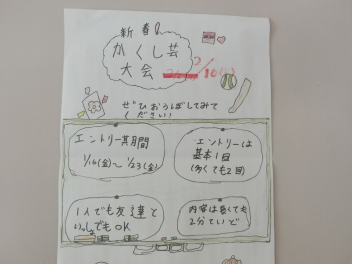 新春!
かくし芸
大会
2/10(火)
ぜひおうぼしてみて
ください!
エントリー期間
1/16(金)〜1/23(金)
エントリーは
基本1回
(多くても2回)
1人でも友達と
いっしょでもOK
内容は長くても
2分ていど